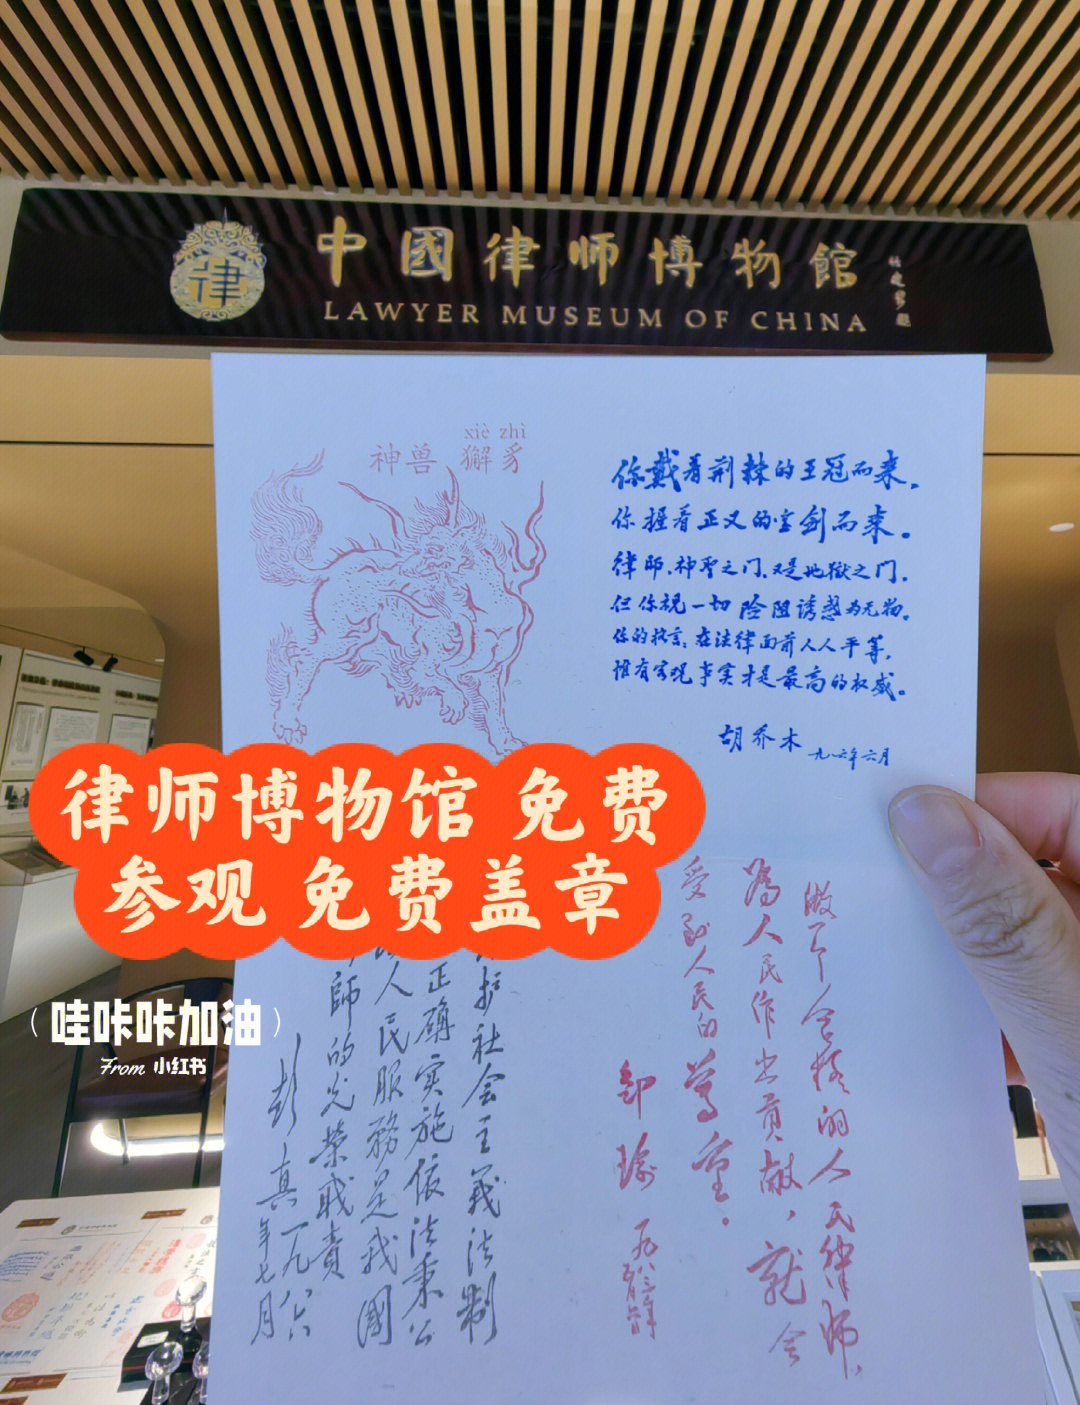 律
中國律师博物馆
LAWYER MUSEUM OF CHINA
xiè zhì
神兽 獬豸
你戴着荆棘的王冠而来，
你握着正义的宝剑而来。
律师，神圣之门，又是地狱之门，
但你视一切险阻诱惑为无物。
你的格言：在法律面前人人平等，
惟有客观事实才是最高的权威。
胡乔木 一九八六年六月
律师博物馆 免费
参观 免费盖章
哇咔咔加油
From 小红书
做一个合格的人民律师，
为人民作出贡献，就会
受到人民的尊重。
邹瑜 一九八三年
护社会主义法制
正确实施依法秉公
人民服務是我國
師的光荣職責
彭真 一九八六年七月